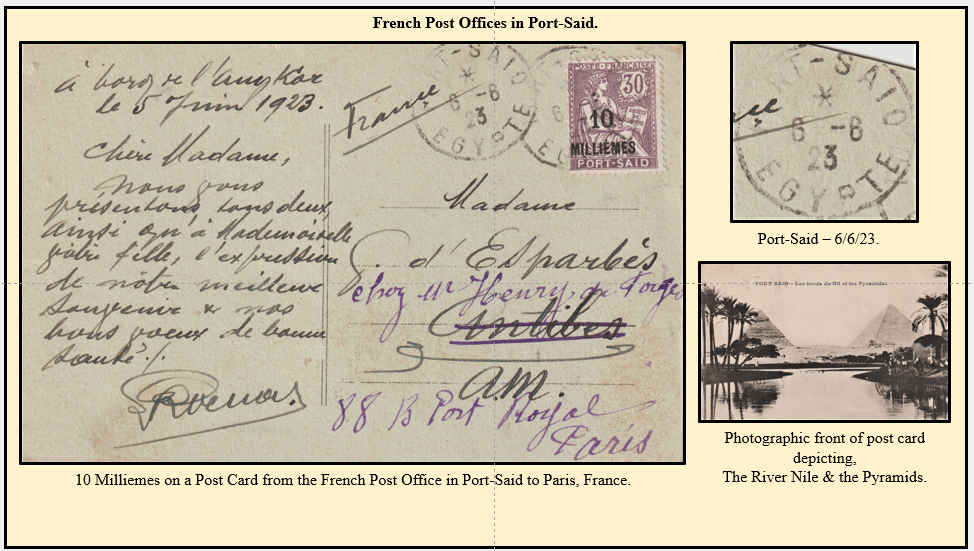 French Post Offices in Port-Said.
à bord de l'Angkor
le 5 Juin 1923.
France
Chère Madame,
Nous vous
présentons tous deux,
ainsi qu'à Mademoiselle
votre fille, l'expression
de notre meilleur
souvenir & nos
bons voeux de bonne
santé.
SAID
6 -6
23
EGYPTE
POSTE FRANÇAISE
30
10
MILLIÈMES
PORT-SAID
Madame
d'Esparbès
chez Mr Henry de
Antibes
A.M.
88 B Port Royal
Paris
-SAID
6 -6
23
EGYPTE
Port-Said – 6/6/23.
PORT SAID - Les bords du Nil et les Pyramides
Photographic front of post card
depicting,
The River Nile & the Pyramids.
10 Milliemes on a Post Card from the French Post Office in Port-Said to Paris, France.